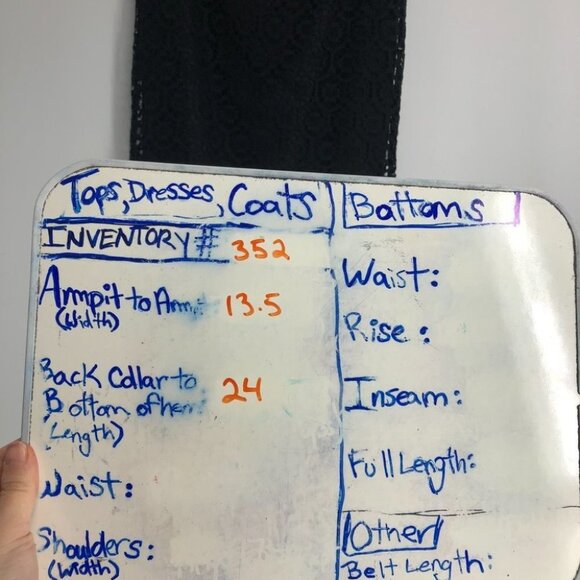 Tops, Dresses, Coats
INVENTORY # 352
Armpit to 13.5
(Width)
Back Collar to
Bottom of hem 24
(Length)
Waist:
Shoulders:
(Width)
Bottoms
Waist:
Rise:
Inseam:
Full Length:
Other
Belt Length: